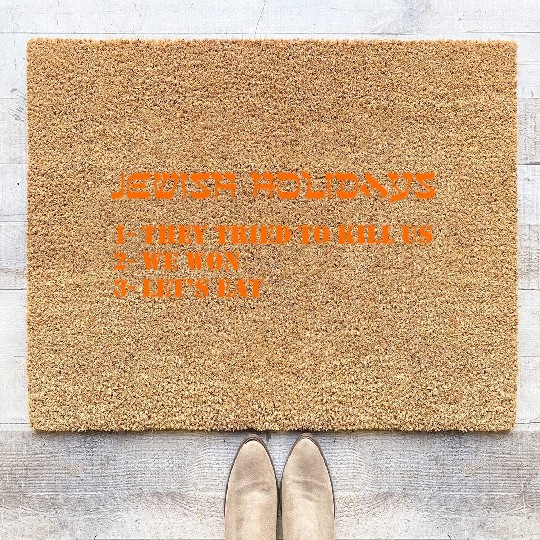 JEWISH HOLIDAYS
1- THEY TRIED TO KILL US
2- WE WON
3- LET'S EAT